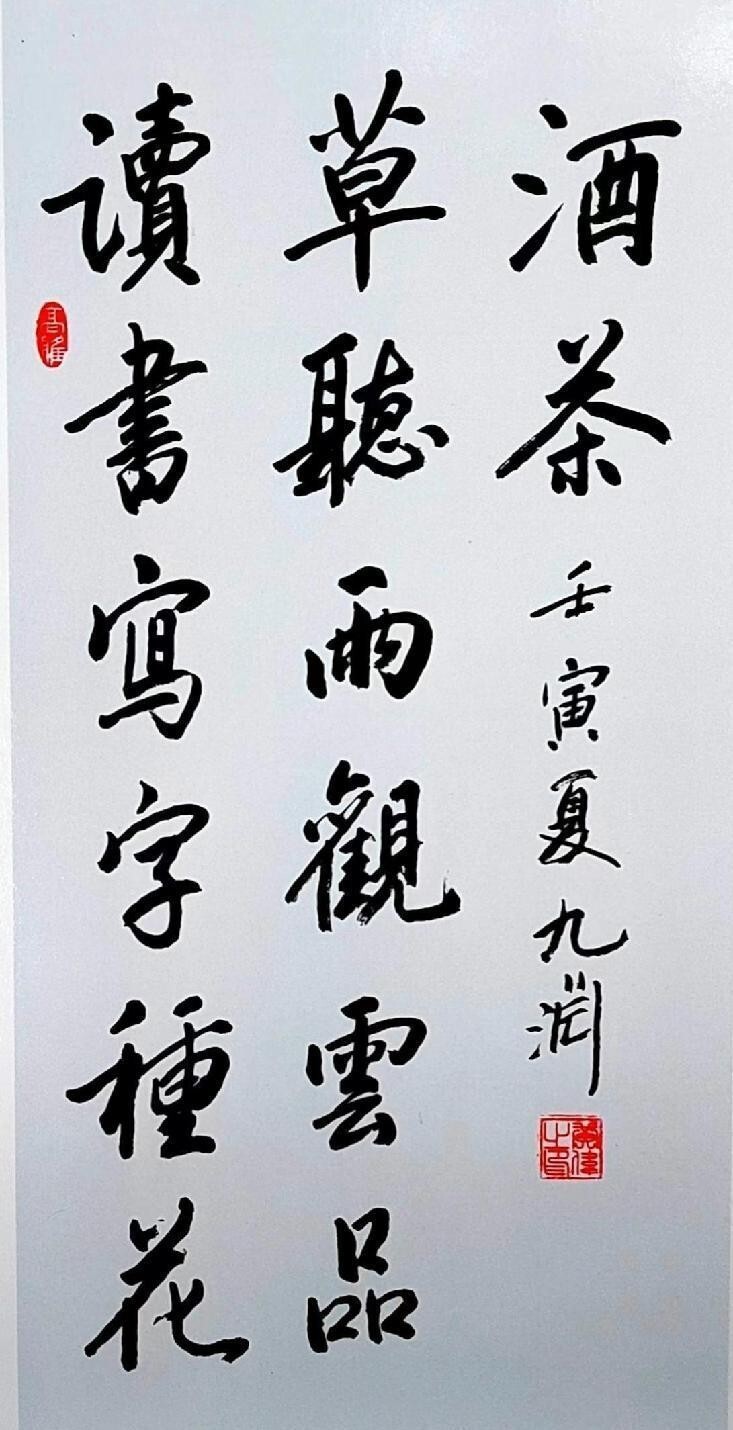 讀書寫字種花
草聽雨觀雲品
酒茶
壬寅夏九淵
高雅